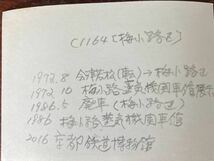 C1164 [梅小路区]
1972.8 会津若松(転)→梅小路区
1972.10 梅小路蒸気機関車館展
1986.5 廃車(梅小路区)
1986 梅小路蒸気機関車館
2016 京都鉄道博物館